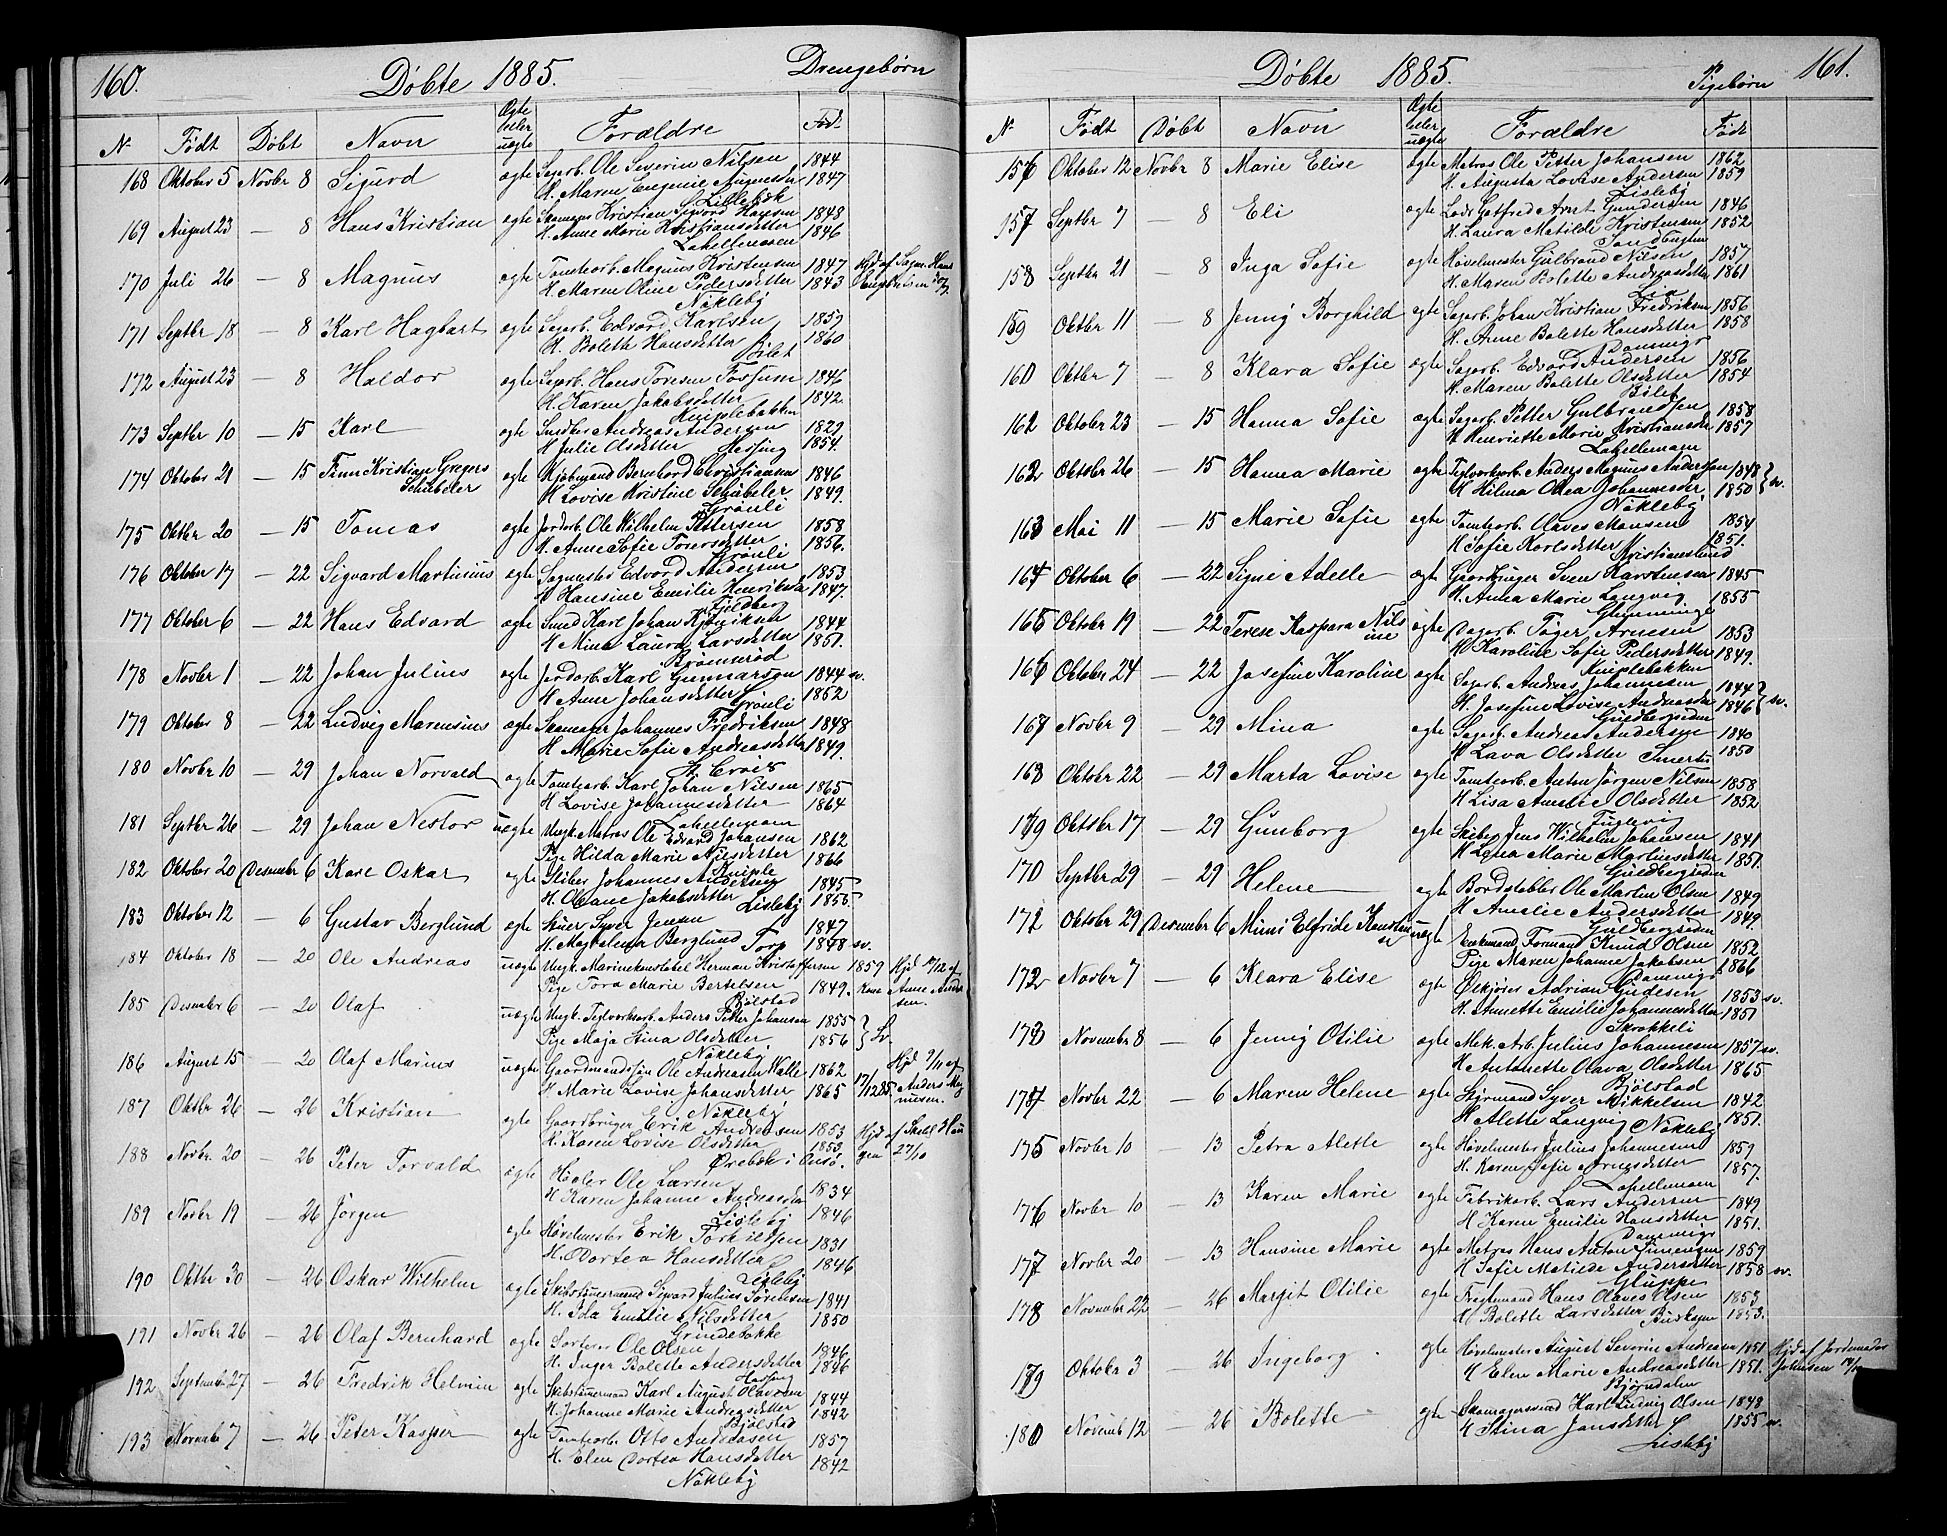 160.
Døbte 1885.
Drengebørn
N Født Døbt Navn Ægte eller uægte Forældre Fød.
168 Oktober 5 Novbr 8 Sigurd ægte Sagarb. Ole Severin Nilsen 1844
H. Maren Eugenie Augustdtr 1847
169 August 23 — 8 Hans Kristian ægte Skomager Kristian Sigvord Hansen 1848
H. Anne Marie Kristiansdetter 1846
Lahellemoen
170 Juli 26 — 8 Magnus ægte Tomtearb. Magnus Kristensen 1847
H. Maren Oline Pedersdetter 1843
Nøkleby
171 Septbr 18 — 8 Karl Hagbart ægte Sagarb. Edvard Karlsen 1859
H. Bolette Hansdetter 1860
172 August 23 — 8 Haldor ægte Sagarb. Hans Toresen Fossum 1846
H. Karen Jakobsdetter 1842
Kniplebakken
173 Septbr 10 — 15 Karl ægte Andreas Andersen 1829
H Julie Olsdetter 1854.
174 Oktober 21 — 15 Finn Kristian Gregers Schübeler ægte Kjøbmand Bernhord Christiansen 1846
H Lovise Kristine Schübeler 1849.
Grønli
175 Oktbr 20 — 15 Tomas ægte Jordarb. Ole Wilhelm Pettersen 1858
H. Anne Sofie Toversdetter 1856.
Grønli
176 Oktober 17 — 22 Sigvard Martinius ægte Sagmester Edvard Andersen 1853
H Hansine Emilie Henriksen 1847.
177 Oktober 6 — 22 Hans Edvard ægte Smed Karl Johan 1844
H Mina Laura Larsdetter 1851.
178 Novbr 1 — 22 Johan Julius ægte Jordarb. Karl Gunnarson 1844 sv.
H Anne Johansdetter 1852
Grønli
179 Oktober 8 — 22 Ludvig Marensius ægte Skomager Johannes Fredriksen 1848
H Marie Sofie Andreasdetter 1849.
St. Croix
180 Novbr 10 — 29 Johan Norvald ægte Tomtearb. Karl Johan Nilsen 1865
H Lovise Johannesdetter 1864
Lahellemoen
181 Septbr 26 — 29 Johan Nestor uægte Ungk. Matros Ole Edvard Johansen 1862
Pige Hilda Marie Nilsdetter 1866
Kniple
182 Oktober 20 Desember 6 Karl Oskar ægte Sliber Johannes Andersen 1845
H. Oleane Jakobsdetter Lisleby 1856.
183 Oktober 12 — 6 Gustav Berglund ægte Stuer Syver Jensen 1847
H. Magdalena Berglund Torp 1848 sv.
184 Oktober 18 — 20 Ole Andreas uægte Ungk. Marinekonstabel Herman Kristoffersen 1859
Pige Tora Marie Bertelsen 1849.
Bjølstad
185 Desember 6 — 20 Olaf uægte Ungk. Teglverksarb. Anders Petter Johansen 1855
Pige Maja Stina Olsdetter 1856 } Sv.
Nøkleby
186 August 15 — 20 Olaf Marius uægte Gaardmandssøn Ole Andreasen Walle 1862
H. Marie Lovise Johansdetter 1865
Nøkleby
187 Oktbr 26 — 26 Kristian ægte Gaardbruger Erik Andreasen 1853
H. Karen Lovise Olsdetter 1853.
Ørebek i Onsø.
188 Novbr. 20 — 26 Peter Torvald ægte Høvler Ole Larsen 1834
H Karen Johanne Andreasdtr 1846
Lisleby
189 Novbr 19 — 26 Jørgen ægte Høvelmester Erik Torkildsen 1831
H. Dortea Hansdetter 1846
Lisleby
190 Oktbr 30 — 26 Oskar Wilhelm ægte Skibstømmermand Sivard Julius Sørensen 1841
H. Ida Emilie Nilsdetter 1850
191 Novbr 26 — 26 Olaf Bernhard ægte Sorterer Ole Olsen 1846
H. Inger Bolette Andersdetter 1846
192 September 27 — 26 Fredrik Helmin ægte Skibstømermand Karl August Olavesen 1844
H. Johanne Marie Andreasdetter 1842
Bjølstad
193 Novembr 7 — 26 Peter Kasper ægte Tomtearb. Otto Andreasen 1857
H. Elen Dortea Hansdetter 1842
Nøkleby
161.
Døbte 1885.
Pigebørn
N Født Døbt Navn Ægte eller uægte Forældre Født
156 Oktober 12 Novbr 8 Marie Elise ægte Matros Ole Petter Johansen 1862
H. Augusta Lovise Andersen 1859
Lisleby
157 Septbr 7 — 8 Eli ægte Lods Gotfred Arnt Gundersen 1846
H. Laura Matilde Kristensen 1852
158 Septbr 21 — 8 Inga Sofie ægte Høvelmester Gulbrand Nilsen 1857
H. Maren Bolette Andreasdetter 1861
159 Oktbr 11 — 8 Jenny Borghild ægte Sagarb. Johan Kristian Fredriksen 1856
H. Anne Bolette Hansdetter 1858
160 Oktbr 7 — 8 Klara Sofie ægte Sagarb. Edvard Andersen 1856
H. Maren Bolette Olsdetter 1854
162 Oktober 23 — 15 Hanna Sofie ægte Sagarb. Petter Gulbrandsen 1858
H Henriette Marie Kristiansdtr 1857
Lahellemoen
162 Oktober 26 — 15 Hanna Marie ægte Teglverksarb. Anders Magnus Andersen 1848
H Hilma Olea Johannesdtr 1850 } sv.
Nøkleby
163 Mai 11 — 15 Marie Sofie ægte Tomtearb. Olaves Hansen 1854
H Sofie Karlsdetter 1851.
Kristianslund
164 Oktober 6 — 22 Signe Adelle ægte Gaardbruger Sven Karstensen 1845
H. Anna Marie Langvig 1855
165 Oktober 19 — 22 Terese Kaspara Nilsine ægte Dagarb. Tøger Arnesen 1853
H Karoline Sofie Pedersdetter 1849.
Kniplebakken
166 Oktober 24 — 22 Josefine Karoline ægte Sagarb. Andreas Johannesen 1844
H. Josefine Lovise Andreasdtr 1846 } sv.
Guldbergsiden
167 Novbr 9 — 29 Mina ægte Sagarb. Andreas Andersen 1840
H Lava Olsdetter Smertu 1850
168 Oktober 22 — 29 Marta Lovise ægte Tomtearb. Anton Jørgen Nilsen 1858
H Lisa Amalie Olsdetter 1852
Fuglevig
169 Oktober 17 — 29 Gunborg ægte Skibsr. Jens Wilhelm Johansen 1841
H Lena Marie Martinsdetter 1851.
Guldbergsiden
170 Septbr 29 — 29 Helene ægte Bordstabler Ole Martin Olsen 1849
H Amalie Andersdetter 1849.
Guldbergsiden
172 Oktober 29 Desember 6 Mimi Elfride uægte Enkemand Formand Knud Olsen 1852
Pige Maren Johanne Jakobsen 1866
172 Novbr 7 — 6 Klara Elise ægte Ølkjører Adrian Gudesen 1853 sv.
H. Annette Emilie Johannesdetter 1851
173 November 8 — 6 Jenny Otilie ægte Mek. Arb. Julius Johannesen 1857 sv.
H Antonette Olava Olsdetter 1865
Bjølstad
174 Novbr 22 — 6 Maren Helene ægte Styrmand Syver Mikkelsen 1842
H Alette Langvig Nøkleby 1851.
175 Novbr 10 — 13 Petra Alette ægte Høvelmester Julius Johannesen 1859
H. Karen Sofie Arnesdetter 1857.
Lahellemoen
176 Novbr 10 — 13 Karen Marie ægte Fabrikarb. Lars Andersen 1849
H Karen Emilie Hansdetter 1851.
177 Novbr 20 — 13 Hansine Marie ægte Matros Hans Anton Simensen 1859
H Sofie Matilde Andersdetter 1858 sv.
Gluppe
178 November 22 — 26 Margit Otilie ægte Fragtemand Hans Olaves Olsen 1853
H Bolette Larsdetter 1853.
179 Oktober 3 — 26 Ingeborg ægte Høvelmester August Severin Andreasen 1851
H Elen Marie Andreasdetter 1851.
Bjørndalen
180 Novemb 12 — 26 Bolette ægte Skomagersvend Karl Ludvig Olsen 1848
H Stina Jansdetter 1855 sv.
Lisleby